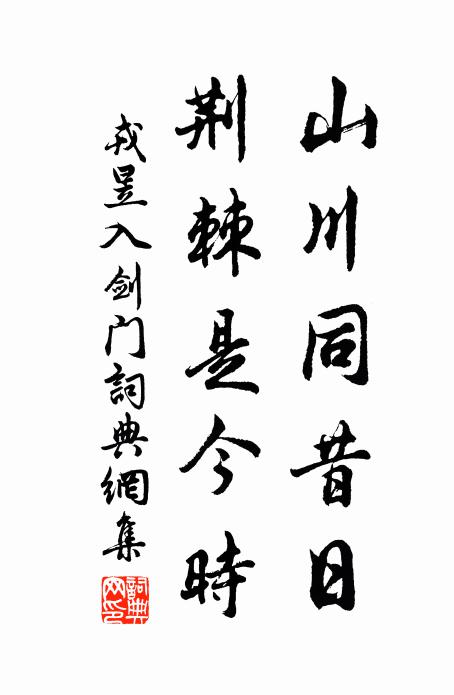 山川同昔日
荆棘是今時
戎昱入剑门詞典網集
詞典网印